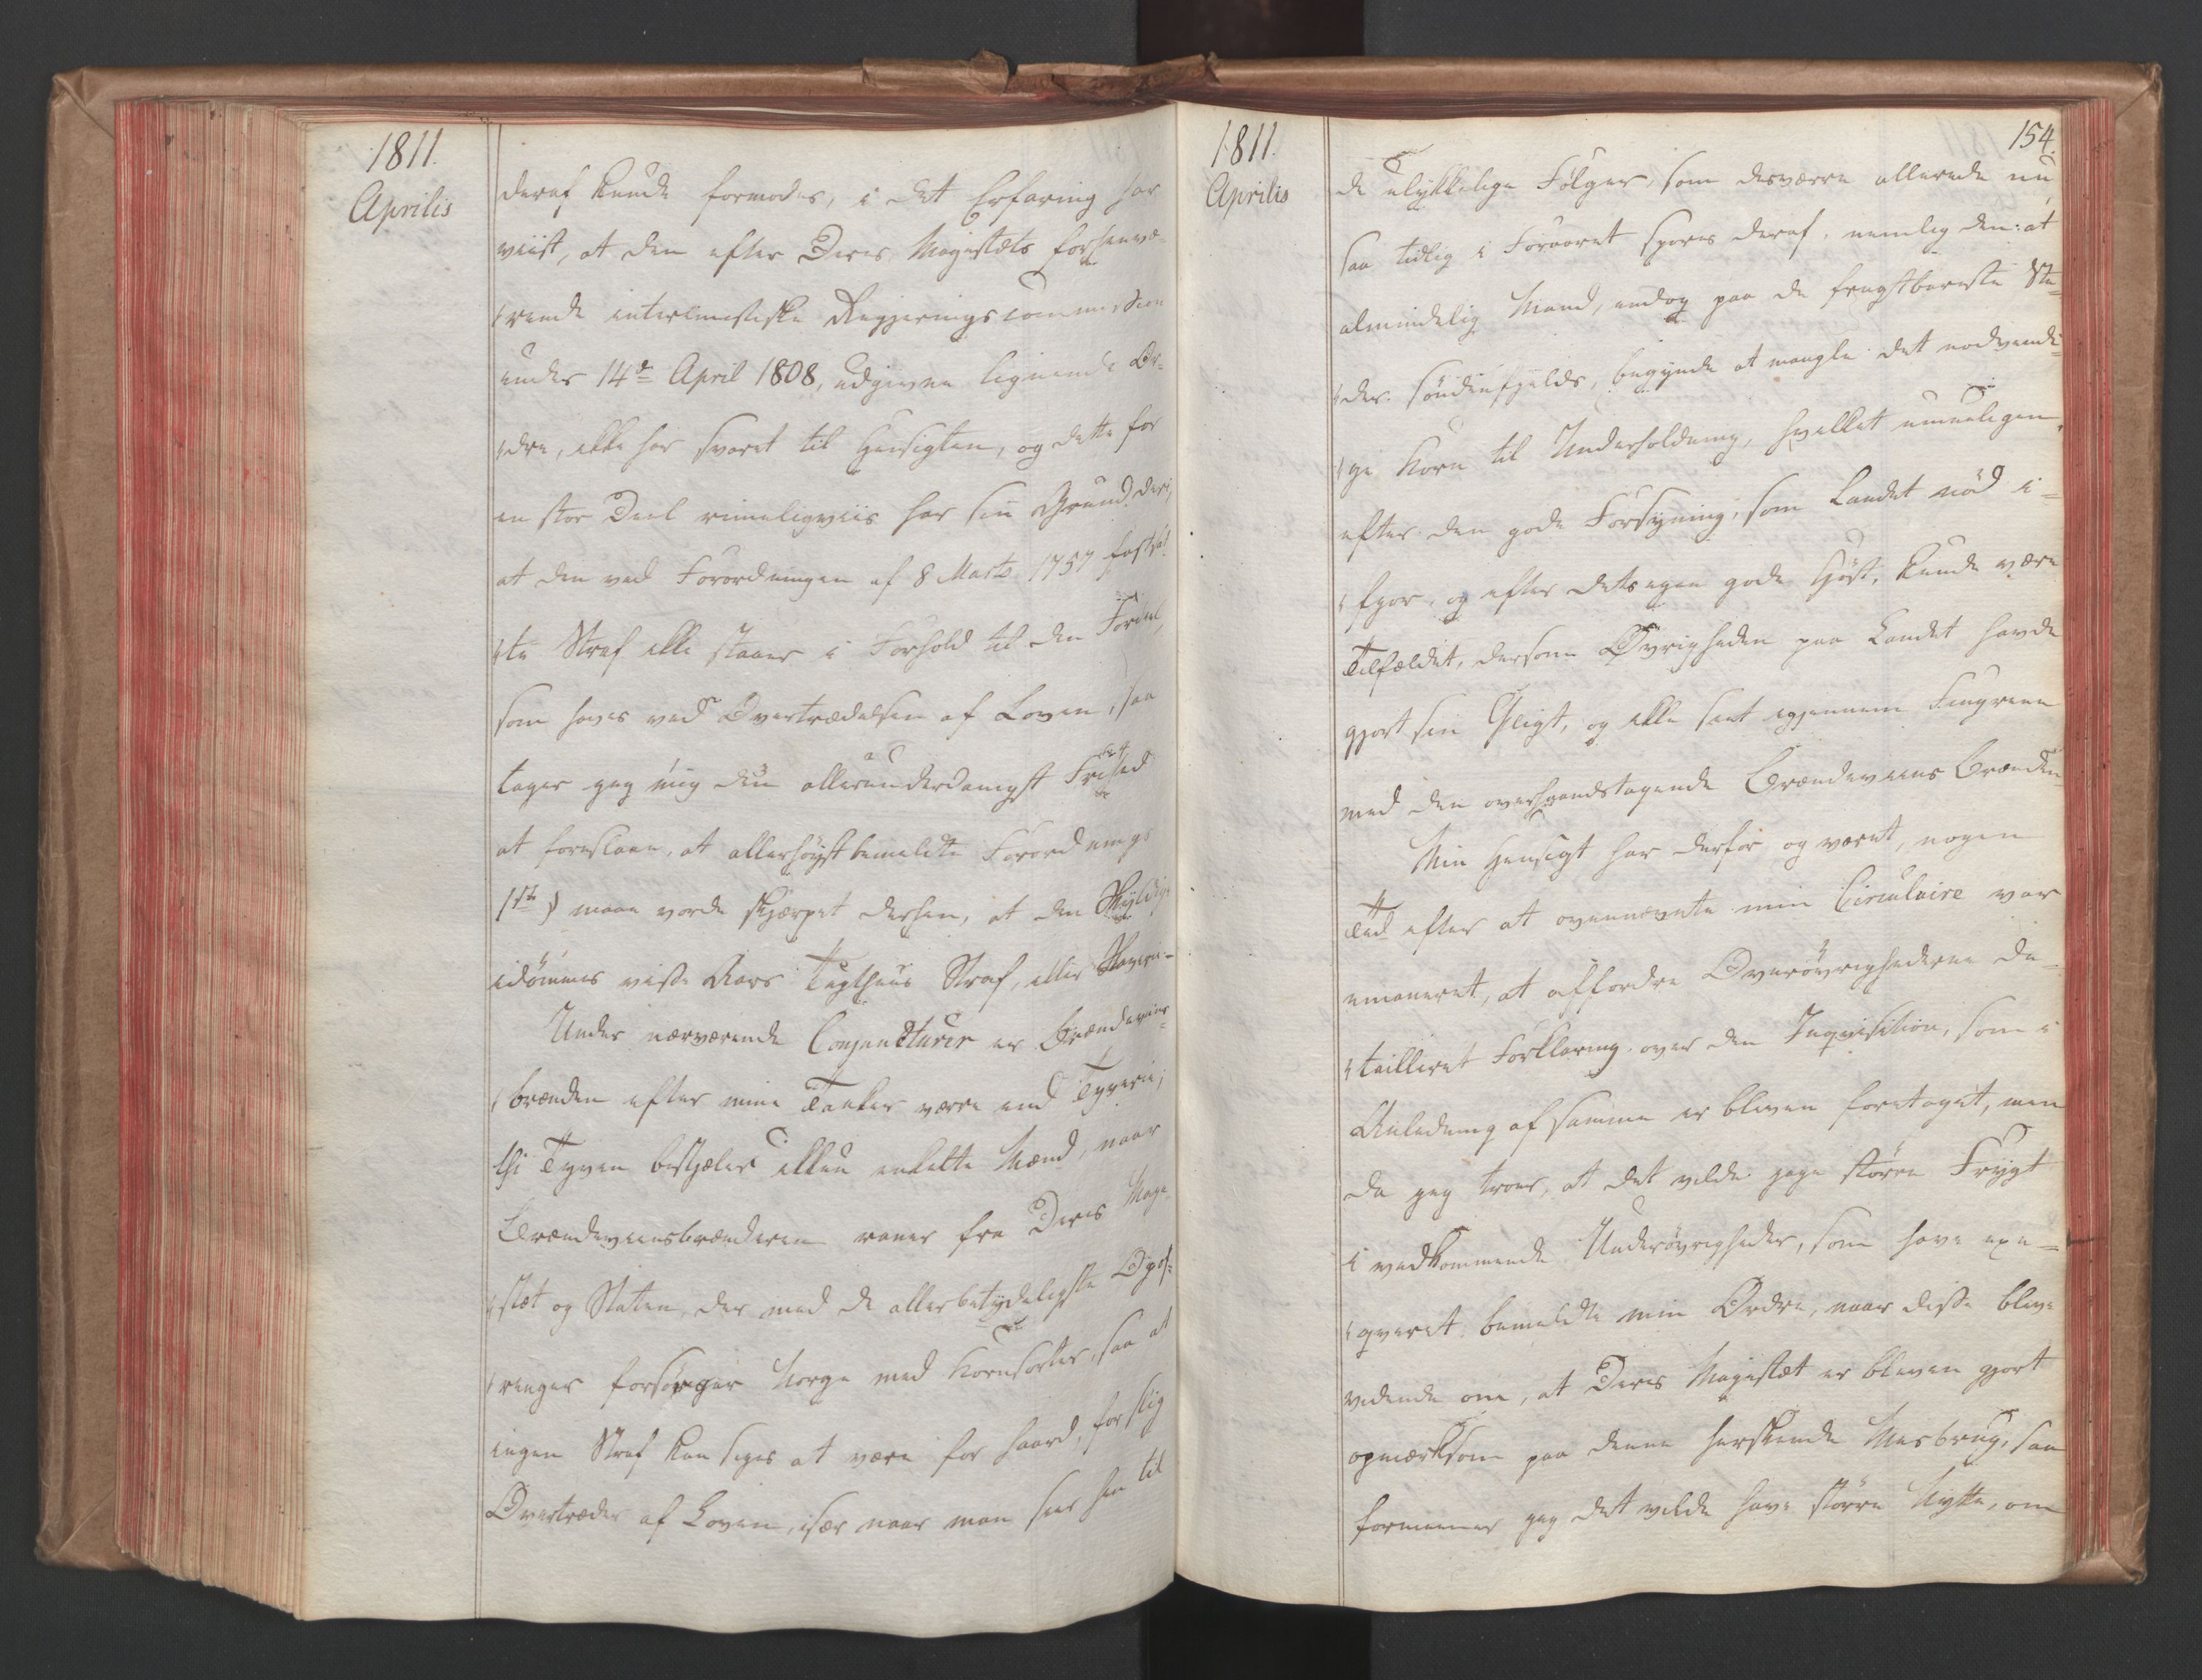 1811.
Aprilis
deraf kunde formodes, i det Erfaring har
viist, at den efter Deres Majestets forhenvæ-
rende interimistiske Regjeringscommission
under 14de April 1808, udgivne lignende Or-
dre, ikke har svaret til Hensigten, og dette for
en stor Deel rimeligviis har sin Grund deri,
at den ved Forordningen af 8 Marts 1757 fastsat-
te Straf ikke staaer i Forhold til den Fordeel,
som haves ved Overtrædelsen af Loven, saa
tager jeg mig den allerunderdanigst Frihed
at foreslaae, at allerhøystbemeldte Forordnings
1ste § maae vorde skjærpet derhen, at den Skyldige
idømmes visse Aars Tugthuus Straf, eller Slaverie-
Under nærværende Conjuncturer er Brændeviins
brænden efter mine Tanker værre end Tyverie;
thi Tyven bestjæler ikkun enkelte Mænd, naar
Brændeviinsbrænderen raner fra Deres Maje
stæt og Staten, der med de allerbetydeligste Opof-
ringer forsørger Norge med Kornsorter, saa at
ingen Straf kan siges at være for haard, for slig
Overtræder af Loven, især naar man seer hen til
1811.
Aprilis
154.
de ulykkelige Følger, som desværre allerede nu,
saa tidlig i Foraaret spores deraf, nemlig den: at
almindelig Mand, endog paa de frugtbareste Stæ-
der søndenfjelds, begynde at mangle det nødvendi-
ge Korn til Underholdning, hvilket umueligen,
efter den gode Forsyning, som Landet nød i-
fjor, og efter dets egen gode Høst, kunde være
Tilfældet, dersom Øvrigheden paa Landet havde
gjort sin Pligt, og ikke seet igjennem Fingrene
med den overhaandtagende Brændeviins Brænden
Min Hensigt har derfor og været, nogen
Tid efter at ovennævnte min Circulaire var
emaneret, at affordre Overøvrighederne de-
tailleret Forklaring over den Inqvisition, som i
Anledning af samme er bleven foretaget, men
da jeg troer, at det vilde jage større Frygt
i vedkommende Underøvrigheder, som have exe-
qveret bemeldte min Ordre, naar disse blive
vidende om, at Deres Majestæt er bleven gjort
opmærksom paa denne herskende Misbrug, saa
formener jeg det vilde have større Nytte, om